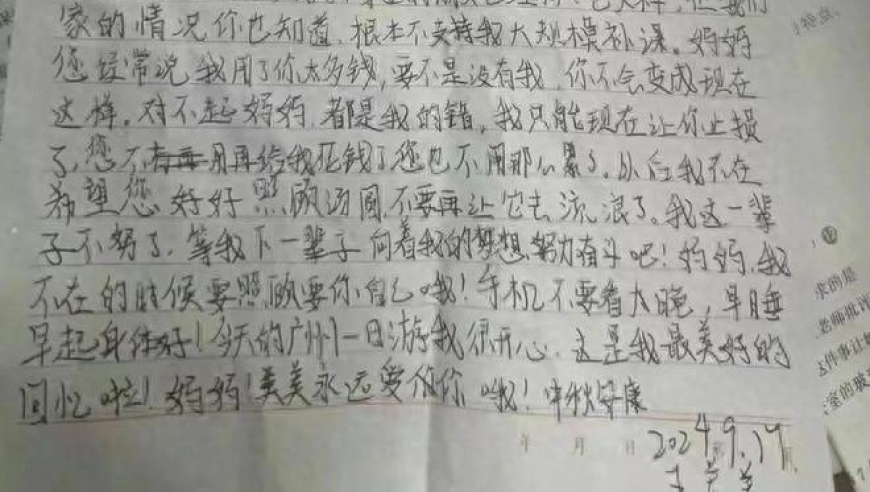 家的情况你也知道,根本不支持我大规模补课。妈妈
您经常说我用了你太多钱,要不是没有我,你不会变成现在
这样。对不起妈妈,都是我的错,我只能现在让你止损
了,您不用再给我花钱了您也不用那么累了。以后我不在
希望您好好照顾汤圆,不要再让它去流浪了。我这一辈
子不努了,等我下一辈子向着我的梦想努力奋斗吧!妈妈,我
不在的时候要照顾要你自己哦!手机不要看太晚,早睡
早起身体好!今天的广州一日游我很开心,这是我最美好的
回忆啦!妈妈!美美永远爱你哦!中秋安康
年 月 日
2024.9.17
求的是
老师批评
这件事让